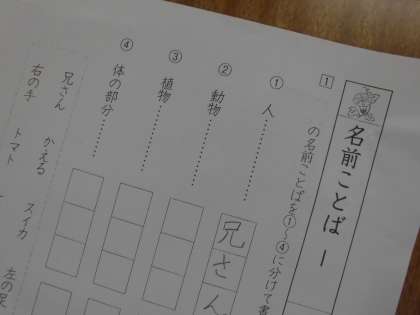 名前ことば 一
1
の名前ことばを①〜④に分けて書
① 人…………
兄さん
② 動物…………
③ 植物…………
④ 体の部分…………
兄さん
かえる
スイカ
右の手
トマト
左の足